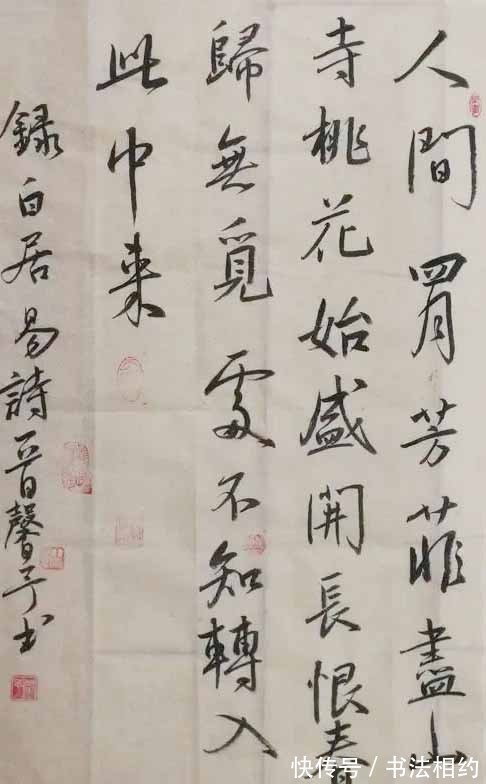 人間四月芳菲盡山
寺桃花始盛開長恨春
歸無覓處不知轉入
此中来
録白居易詩馨书
快传号/书法相约